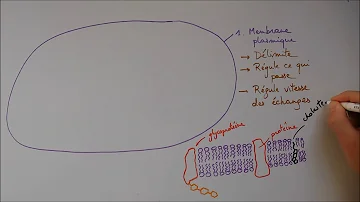 1. Membrane
plasmique
→ Délimite
→ Régule ce qui
passe
→ Régule vitesse
des échanges
glycoprotéine
protéine
choleste